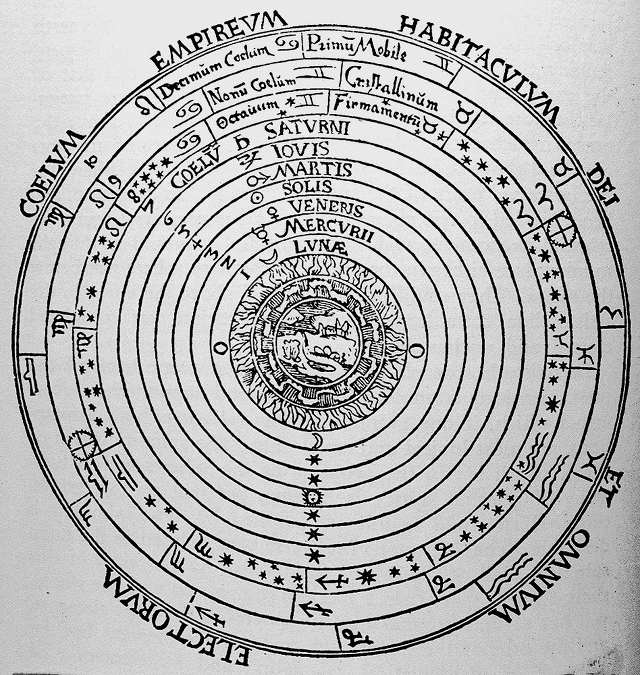 COELVM EMPIREVM HABITACVLVM DEI ET OMNIVM ELECTORVM
Decimum Coelum
Primũ Mobile
10
Nonũ Coelum
Cristallinum
9
Octauum
Firmamentũ
8
COELṼ
7
SATVRNI
IOVIS
MARTIS
SOLIS
VENERIS
MERCVRII
LVNÆ
6
5
4
3
2
1